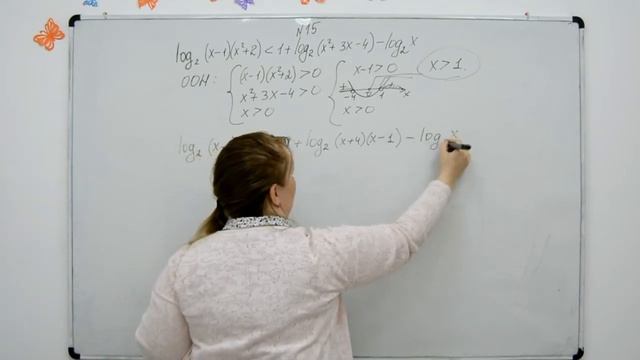 N15
log₂(x-1)(x²+2) < 1 + log₂(x²+3x-4) - log₂x
ООН: { (x-1)(x²+2) > 0 { x-1 > 0 x > 1.
x²+3x-4 > 0 + -4 - 1 + x
x > 0 x > 0
log₂ + log₂(x+4)(x-1) - log x